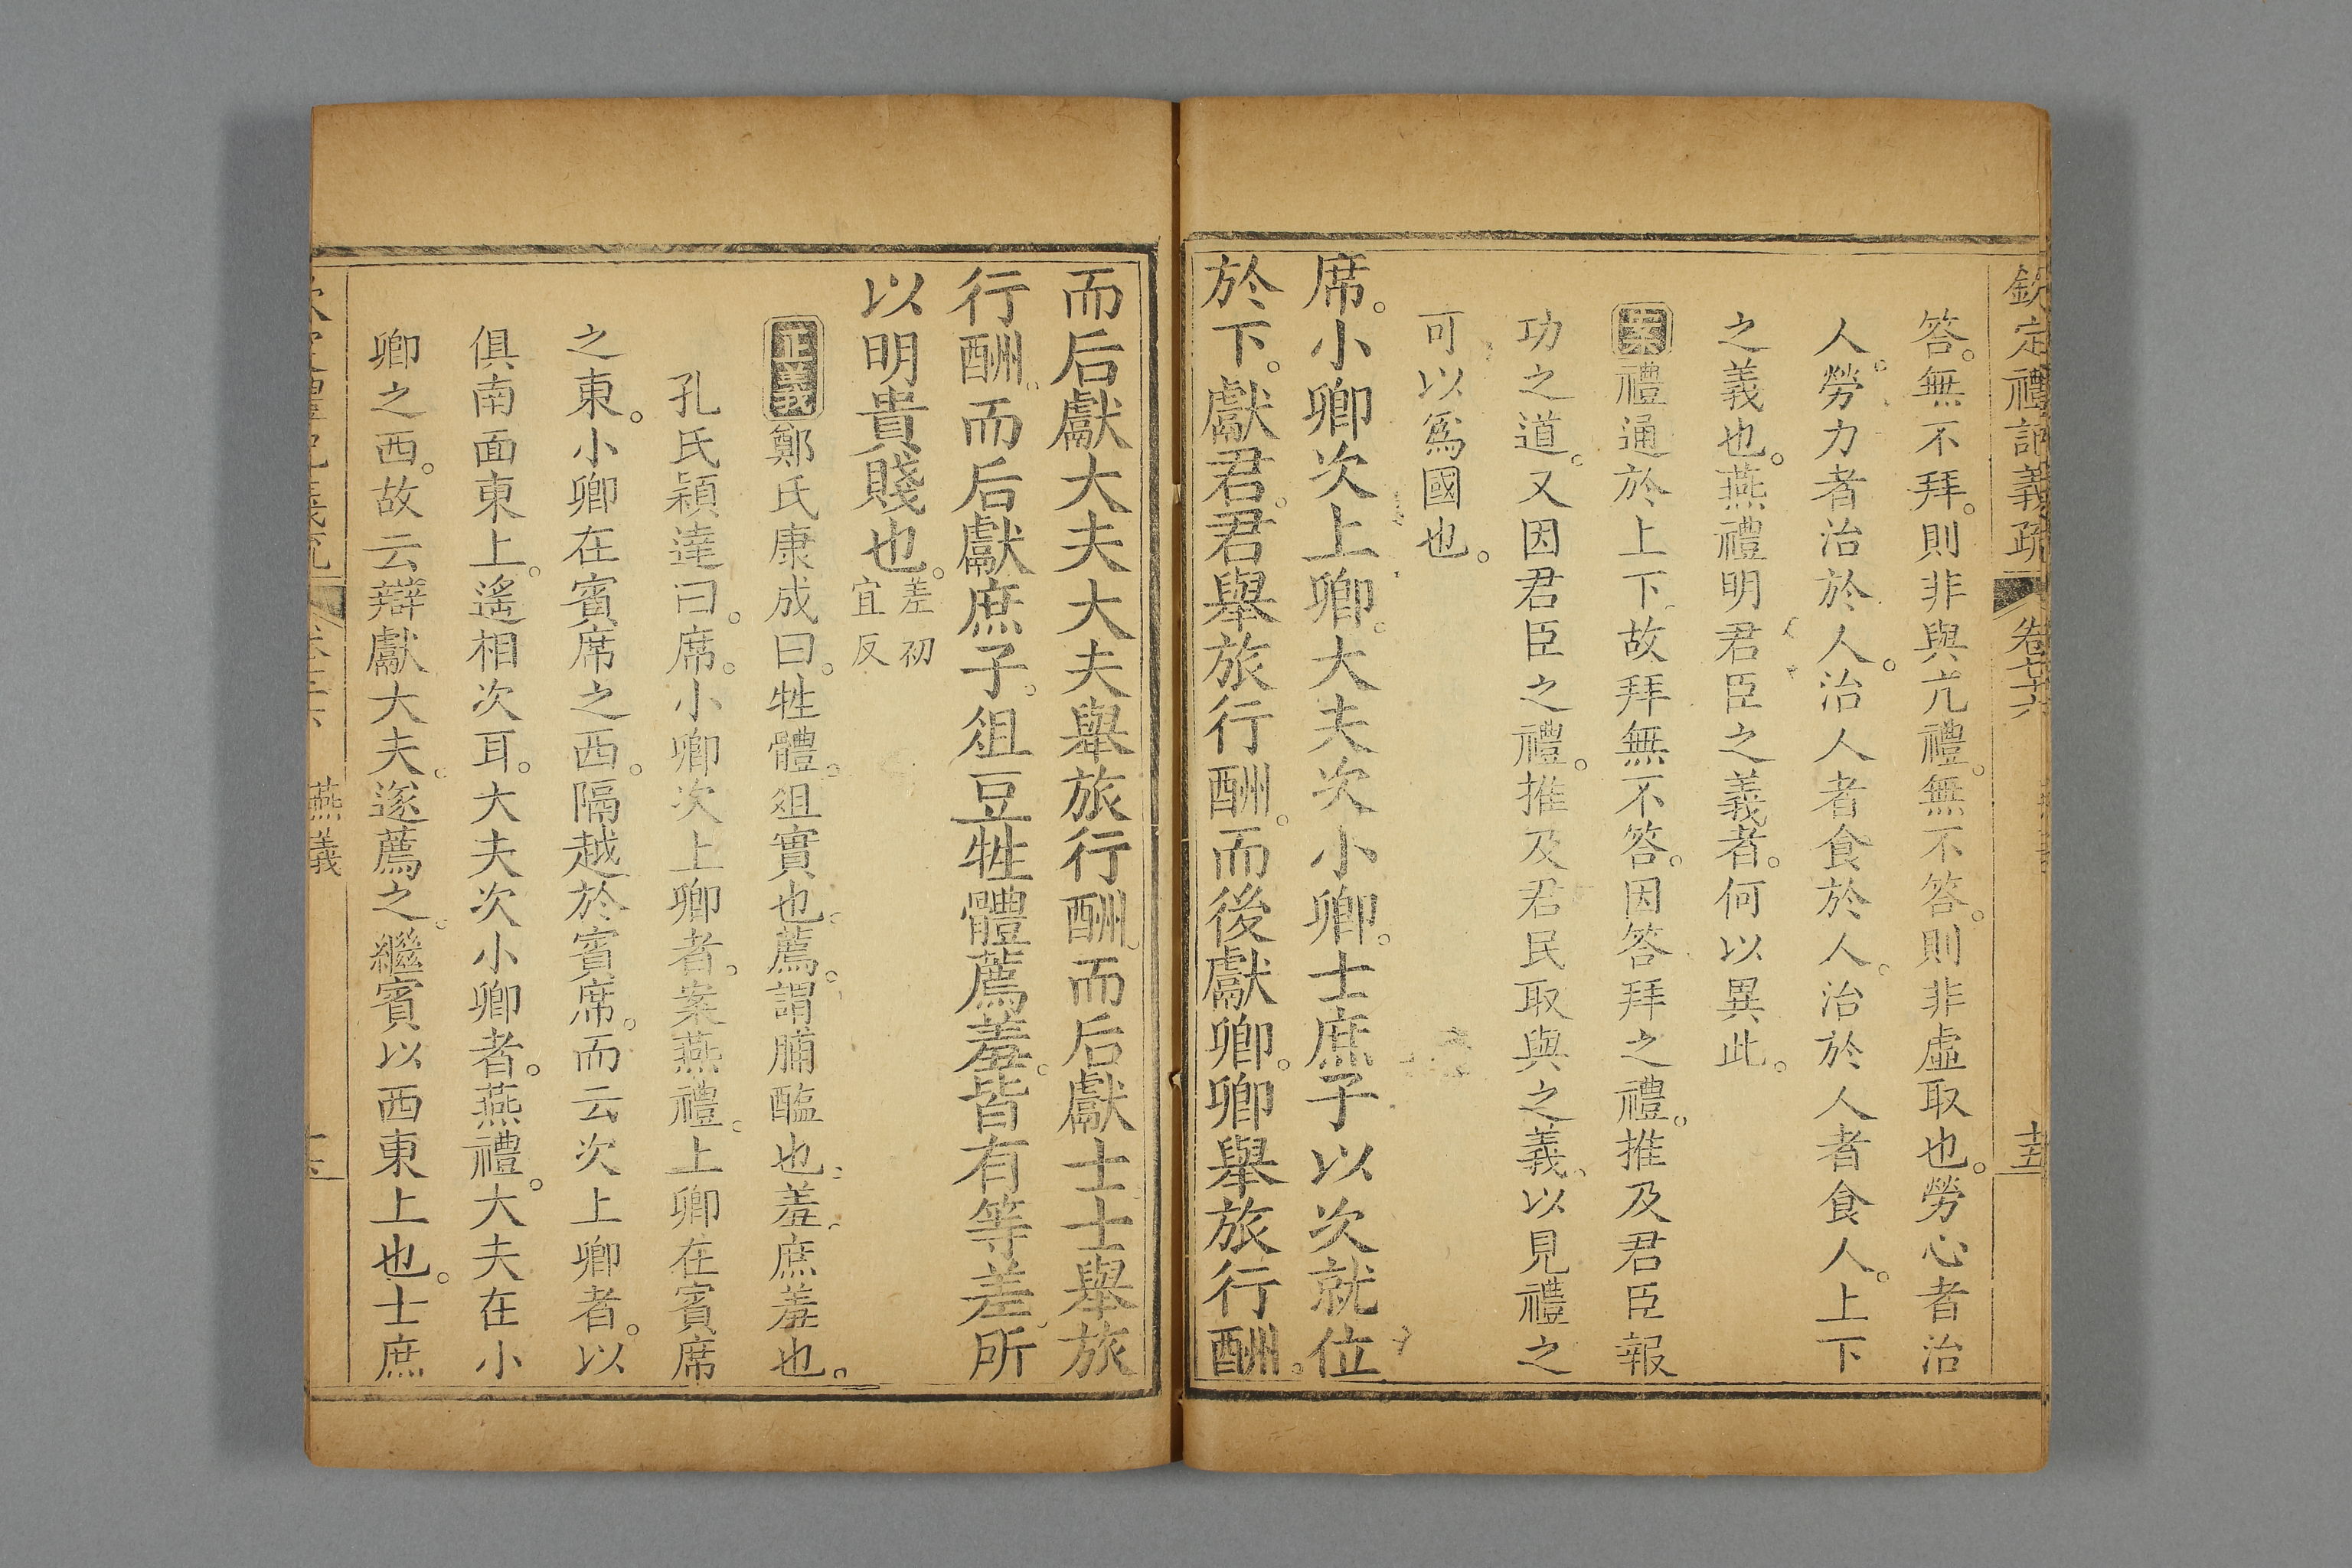 欽定禮記義疏 卷七十六 十五
答。無不拜。則非與亢禮。無不答。則非虛取也。勞心者治
人。勞力者治於人。治人者食於人。治於人者食人。上下
之義也。燕禮明君臣之義者。何以異此。
案禮通於上下。故拜無不答。因答拜之禮。推及君臣報
功之道。又因君臣之禮。推及君民取與之義。以見禮之
可以爲國也。
席。小卿次上卿。大夫次小卿。士庶子以次就位
於下。獻君。君舉旅行酬。而後獻卿。卿舉旅行酬。
而后獻大夫大夫舉旅行酬。而后獻士士舉旅
行酬。而后獻庶子。俎豆牲體薦羞。皆有等差。所
以明貴賤也。差初宜反
正義鄭氏康成曰。牲體。俎實也。薦。謂脯醢也。羞。庶羞也。
孔氏穎達曰。席。小卿次上卿者。案燕禮。上卿在賓席
之東。小卿在賓席之西。隔越於賓席。而云次上卿者。以
俱南面東上。遙相次耳。大夫次小卿者。燕禮。大夫在小
卿之西。故云辯獻大夫。遂薦之。繼賓以西東上也。士庶
燕義